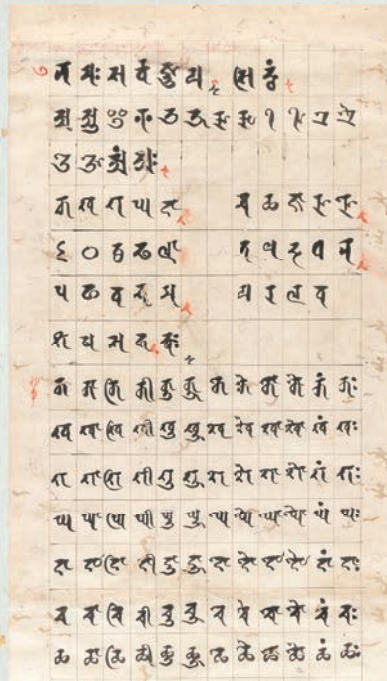 𑖡 𑖦𑖾 𑖭 𑖨𑖿𑖪 𑖕𑖿𑖗𑖯 𑖧 𑖭𑖰 𑖟𑖿𑖠𑖽
𑖀 𑖁 𑖂 𑖃 𑖄 𑖅 𑖆 𑖇 𑖈 𑖉 𑖊 𑖋
𑖌 𑖍 𑖀𑖽 𑖀𑖾
𑖎 𑖏 𑖐 𑖑 𑖒 𑖓 𑖔 𑖕 𑖖 𑖗
𑖘 𑖙 𑖚 𑖛 𑖜 𑖝 𑖞 𑖟 𑖠 𑖡
𑖢 𑖣 𑖤 𑖥 𑖦 𑖧 𑖨 𑖩 𑖪
𑖫 𑖬 𑖭 𑖮
𑖎 𑖎𑖯 𑖎𑖰 𑖎𑖱 𑖎𑖲 𑖎𑖳 𑖎𑖸 𑖎𑖹 𑖎𑖺 𑖎𑖻 𑖎𑖽 𑖎𑖾
𑖏 𑖏𑖯 𑖏𑖰 𑖏𑖱 𑖏𑖲 𑖏𑖳 𑖏𑖸 𑖏𑖹 𑖏𑖺 𑖏𑖻 𑖏𑖽 𑖏𑖾
𑖐 𑖐𑖯 𑖐𑖰 𑖐𑖱 𑖐𑖲 𑖐𑖳 𑖐𑖸 𑖐𑖹 𑖐𑖺 𑖐𑖻 𑖐𑖽 𑖐𑖾
𑖑 𑖑𑖯 𑖑𑖰 𑖑𑖱 𑖑𑖲 𑖑𑖳 𑖑𑖸 𑖑𑖹 𑖑𑖺 𑖑𑖻 𑖑𑖽 𑖑𑖾
𑖒 𑖒𑖯 𑖒𑖰 𑖒𑖱 𑖒𑖲 𑖒𑖳 𑖒𑖸 𑖒𑖹 𑖒𑖺 𑖒𑖻 𑖒𑖽 𑖒𑖾
𑖓 𑖓𑖯 𑖓𑖰 𑖓𑖱 𑖓𑖲 𑖓𑖳 𑖓𑖸 𑖓𑖹 𑖓𑖺 𑖓𑖻 𑖓𑖽 𑖓𑖾
𑖔 𑖔𑖯 𑖔𑖰 𑖔𑖱 𑖔𑖲 𑖔𑖳 𑖔𑖸 𑖔𑖹 𑖔𑖺 𑖔𑖻 𑖔𑖽 𑖔𑖾